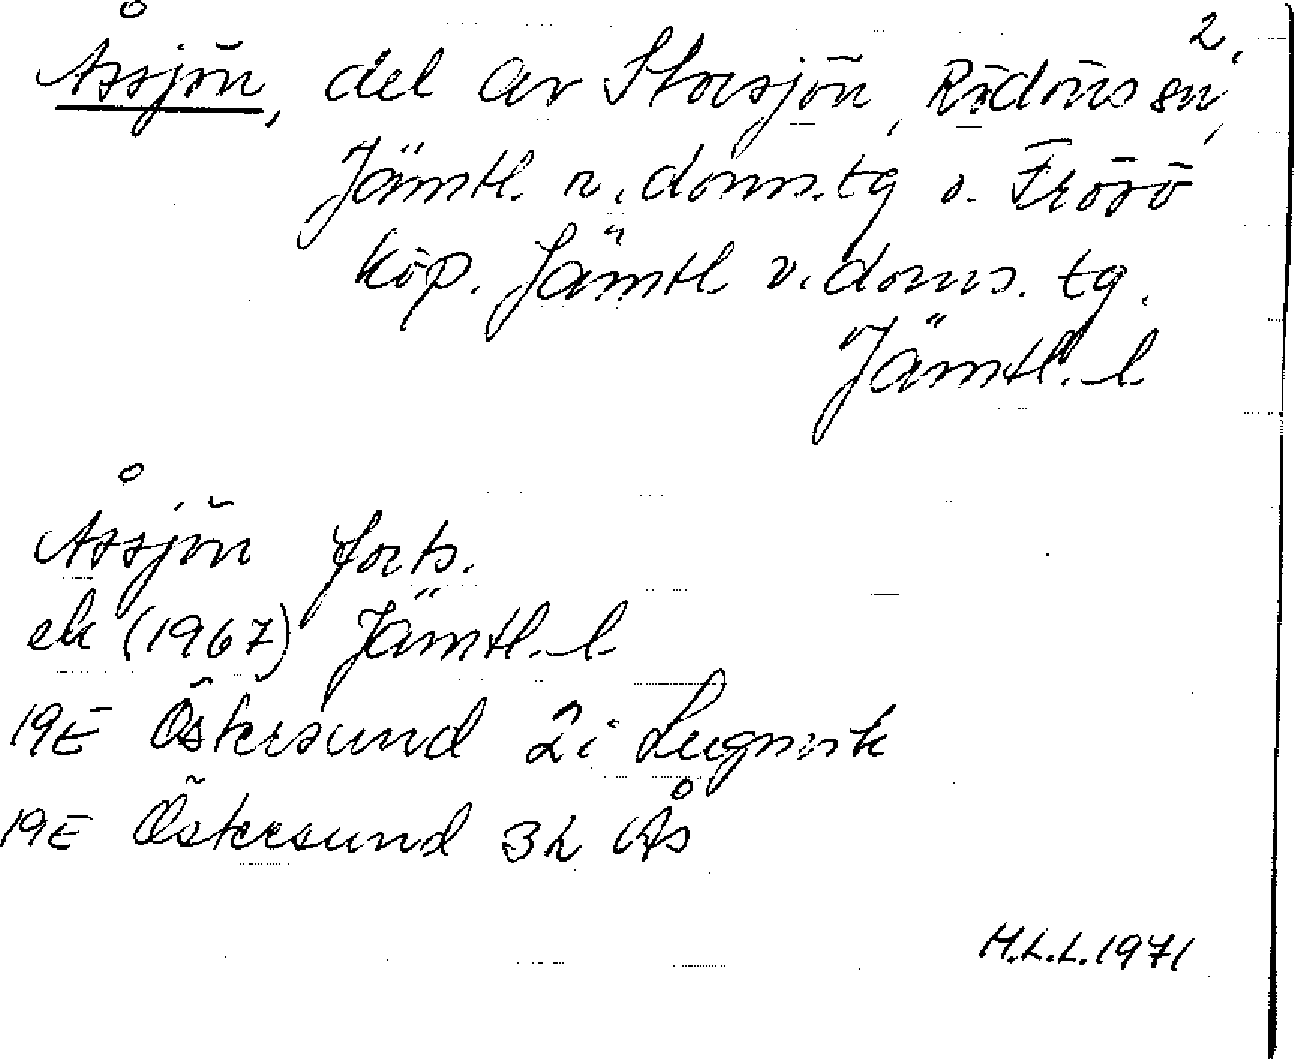 2.
Åssjön, del av Storsjön, Rödöns sn,
Jämtl. n. doms. tg o. Frösö
köp. Jämtl v. doms. tg.
Jämtl. l
Åssjön forts.
ek (1967) Jämtl. l
19E Östersund 2i Lugnvik
19E Östersund 3h Ås
H.L.L. 1971